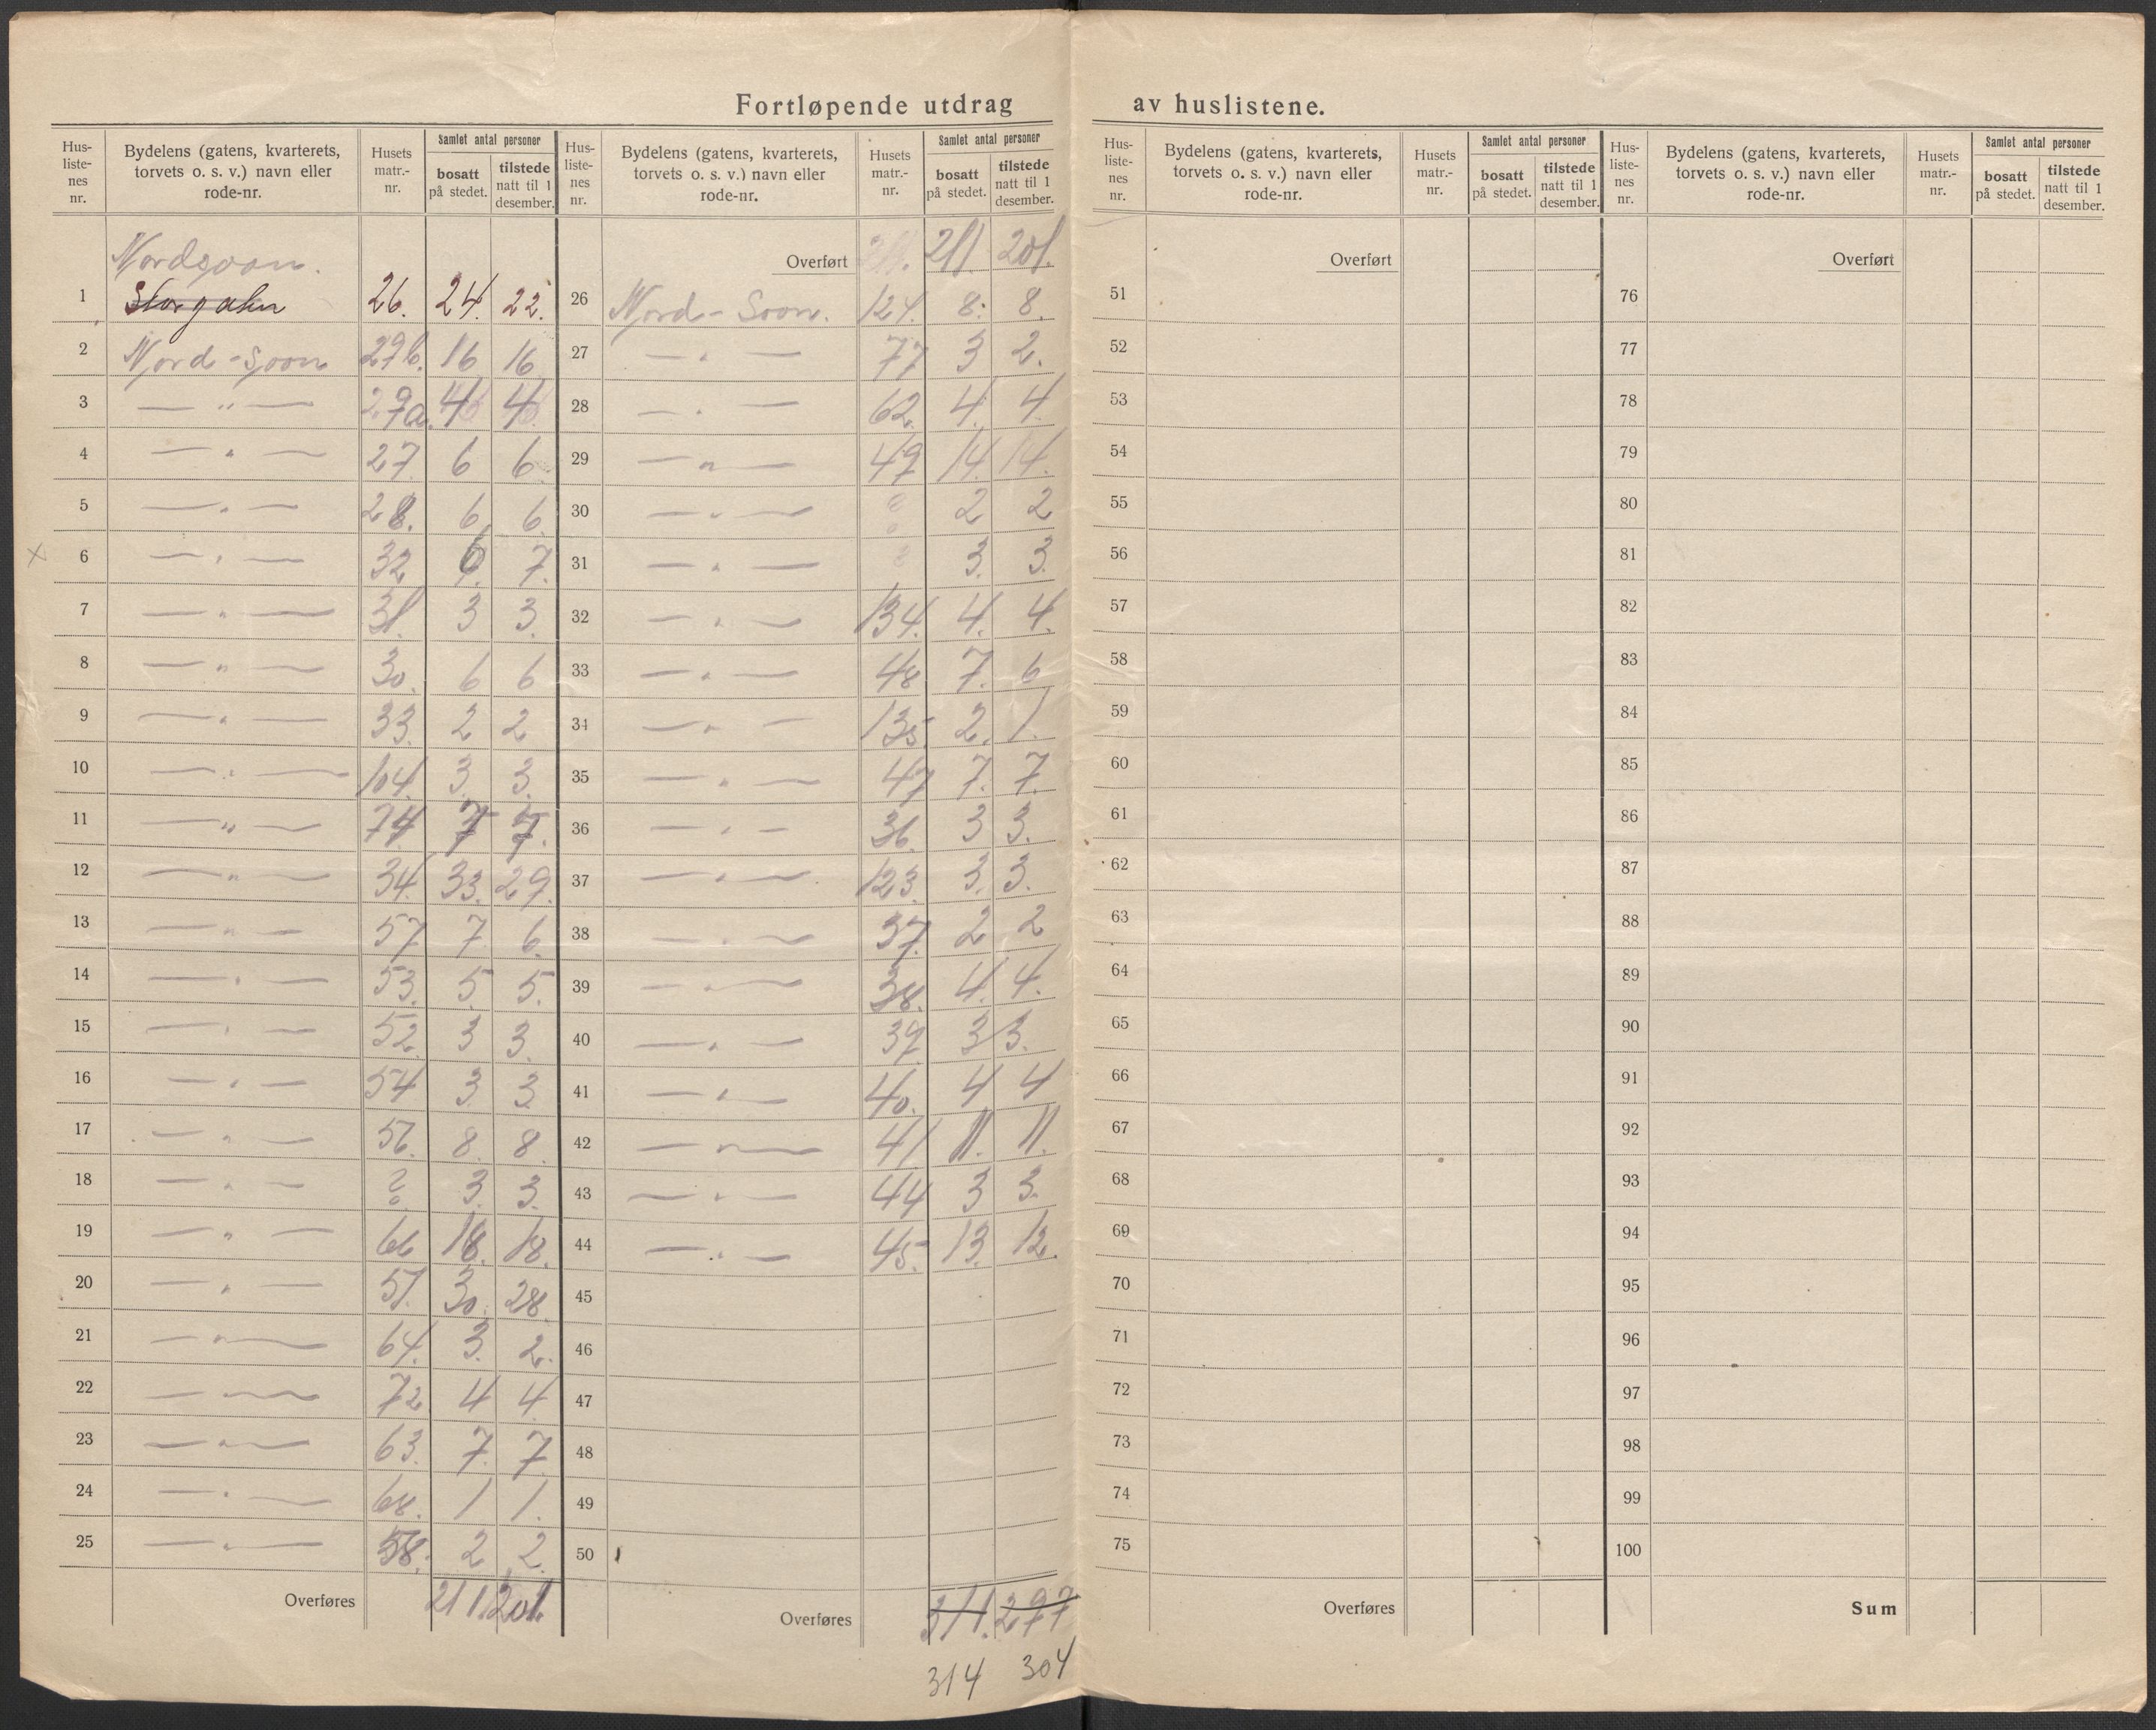 Fortløpende utdrag av huslistene.
Hus-listenes nr. Bydelens (gatens, kvarterets, torvets o. s. v.) navn eller rode-nr. Husets matr.-nr. Samlet antal personer bosatt på stedet. tilstede natt til 1 desember.
Nordsoon.
1 Storgaten 26. 24. 22.
2 Nord-Soon 29b. 16 16
3 — " — 29a.
4 — " — 27 6 6
5 — " — 28. 6 6
6 — " — 32 6 7.
7 — " — 31. 3 3.
8 — " — 30. 6 6
9 — " — 33. 2 2
10 — " — 104. 3. 3.
11 — " — 74 7 7.
12 — " — 34 33. 29.
13 — " — 57 7 6
14 — " — 53. 5 5.
15 — " — 52. 3 3.
16 — " — 54 3 3
17 — " — 56. 8. 8.
18 — " — ? 3. 3.
19 — " — 66 18. 18.
20 — " — 51. 30. 28
21 — " — 64. 3. 2.
22 — " — 72 4 4
23 — " — 63. 7. 7
24 — " — 68. 1 1.
25 — " — 58. 2 2.
Overføres 211. 201.
Hus-listenes nr. Bydelens (gatens, kvarterets, torvets o. s. v.) navn eller rode-nr. Husets matr.-nr. Samlet antal personer bosatt på stedet. tilstede natt til 1 desember.
Overført 211. 211. 201.
26 Nord-Soon. 124. 8. 8.
27 — " — 77 3 2.
28 — " — 62. 4. 4
29 — " — 49 14. 14.
30 — " — ? 2 2
31 — " — ? 3. 3.
32 — " — 134. 4. 4.
33 — " — 48 7. 6
34 — " — 135. 2. 1.
35 — " — 47 7. 7.
36 — " — 36. 3 3.
37 — " — 123. 3. 3.
38 — " — 37. 2 2
39 — " — 38. 4. 4.
40 — " — 39 3 3.
41 — " — 40. 4 4
42 — " — 41 11. 11.
43 — " — 44 3 3.
44 — " — 45. 13. 12.
45
46
47
48
49
50
Overføres 311. 297
314 304
Hus-listenes nr. Bydelens (gatens, kvarterets, torvets o. s. v.) navn eller rode-nr. Husets matr.-nr. Samlet antal personer bosatt på stedet. tilstede natt til 1 desember.
Overført
51
52
53
54
55
56
57
58
59
60
61
62
63
64
65
66
67
68
69
70
71
72
73
74
75
Overføres
Hus-listenes nr. Bydelens (gatens, kvarterets, torvets o. s. v.) navn eller rode-nr. Husets matr.-nr. Samlet antal personer bosatt på stedet. tilstede natt til 1 desember.
Overført
76
77
78
79
80
81
82
83
84
85
86
87
88
89
90
91
92
93
94
95
96
97
98
99
100
Sum